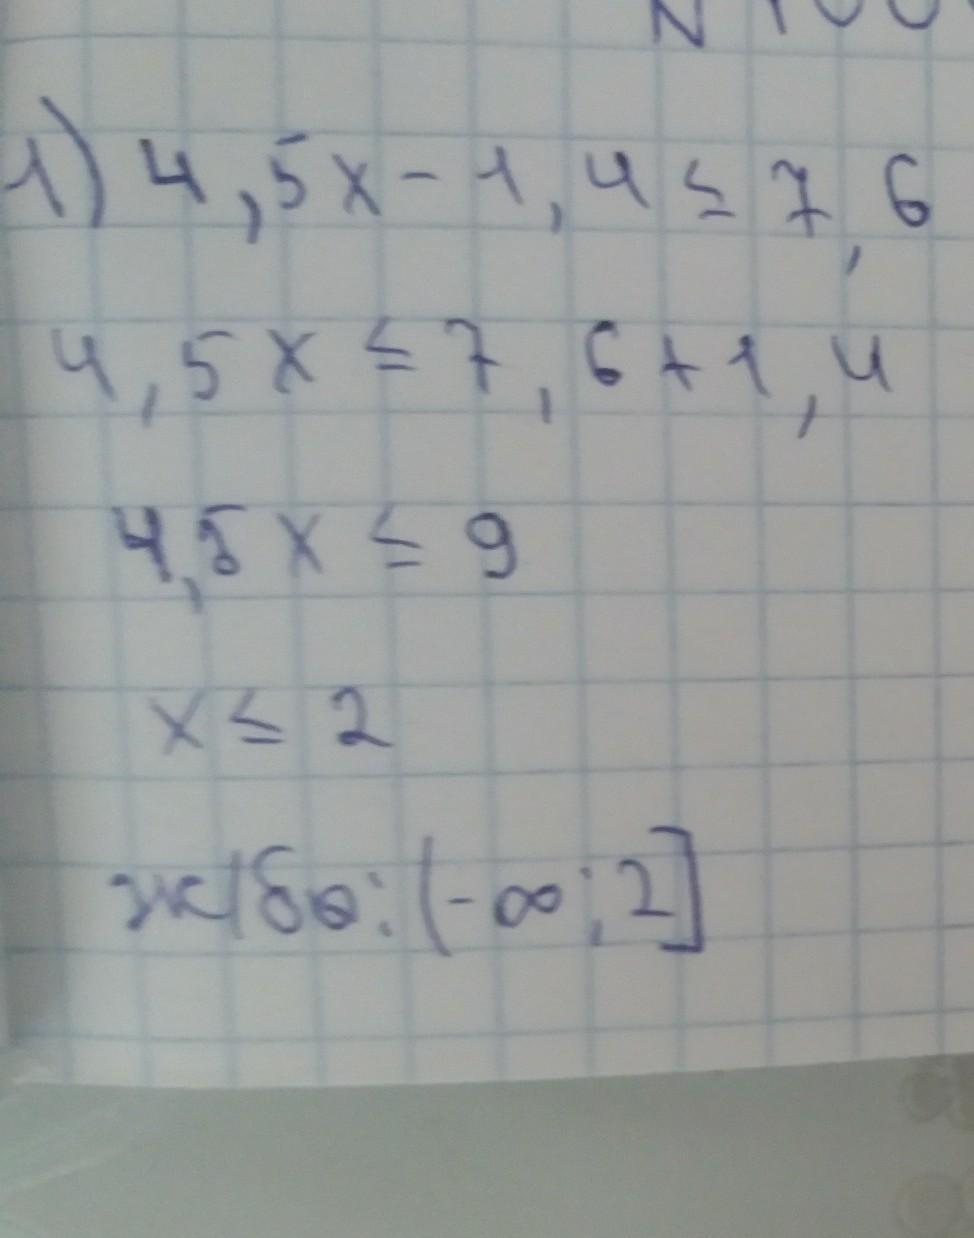 1) 4,5x - 1,4 ≤ 7,6
4,5x ≤ 7,6 + 1,4
4,5x ≤ 9
x ≤ 2
(-∞; 2]